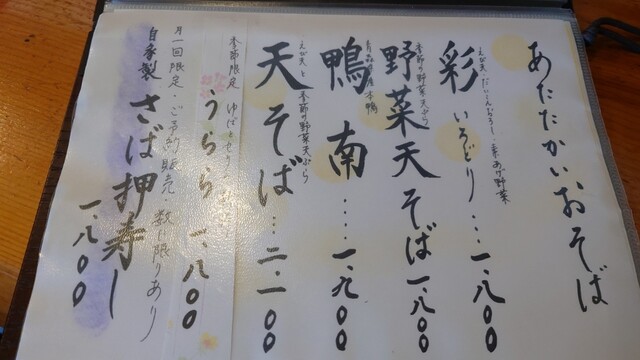 あたたかいおそば
えび天・だいこんおろし・素あげ野菜
彩 いろどり…一、八〇〇
季節の野菜天ぷら
野菜天そば 一、八〇〇
青森県産本鴨
鴨南…一、九〇〇
えび天と季節の野菜天ぷら
天そば…二、一〇〇
季節限定 ゆばとせり
うらら 一、八〇〇
月一回限定・ご予約販売・数に限りあり
自家製 さば押寿し
一、八〇〇